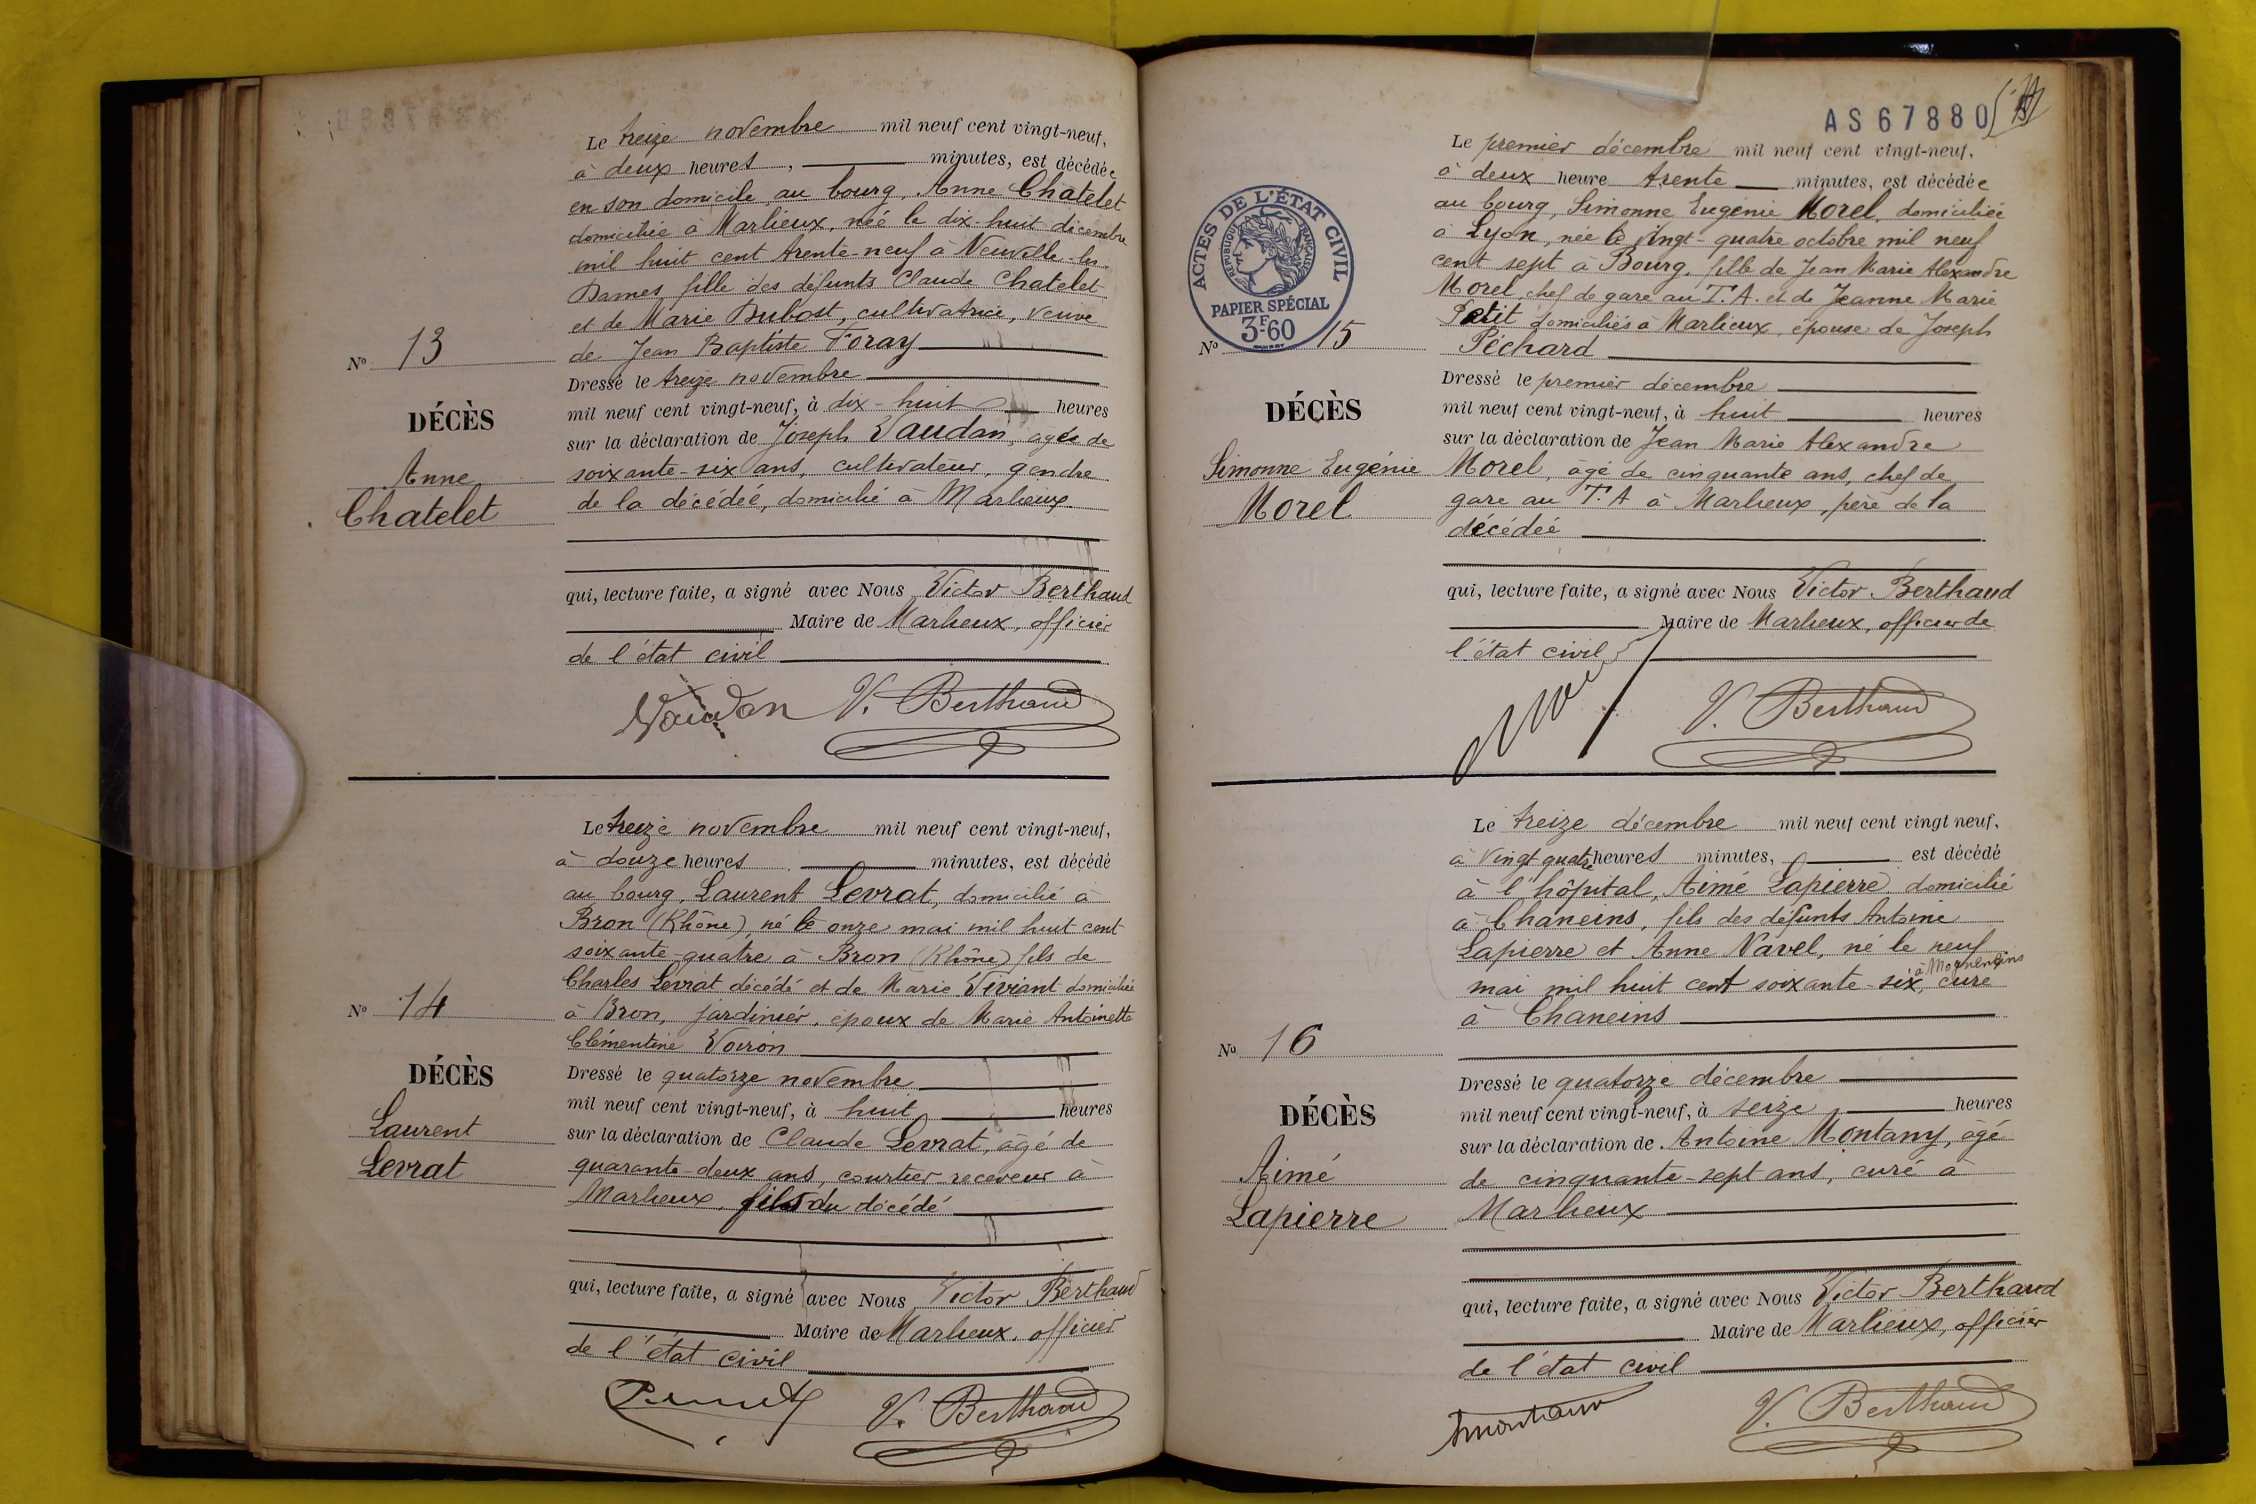 Le treize novembre mil neuf cent vingt-neuf,
à deux heures, minutes, est décédée
en son domicile au bourg, Anne Chatelet
domiciliée à Marlieux, née le dix-huit décembre
mil huit cent trente-neuf à Neuville-les-
Dames, fille des défunts Claude Chatelet
et de Marie Dubost, cultivatrice, veuve
de Jean Baptiste Foray
No 13
Dressé le treize novembre
DÉCÈS
mil neuf cent vingt-neuf, à dix-huit heures
Anne
Chatelet
sur la déclaration de Joseph Vaudan, âgé de
soixante-six ans, cultivateur, gendre
de la décédée, domicilié à Marlieux.
qui, lecture faite, a signé avec Nous Victor Berthaud
Maire de Marlieux, officier
de l'état civil
Vaudan V. Berthaud
Le treize novembre mil neuf cent vingt-neuf,
à douze heures minutes, est décédé
au bourg, Laurent Levrat, domicilié à
Bron (Rhône), né le onze mai mil huit cent
soixante-quatre à Bron (Rhône) fils de
Charles Levrat décédé et de Marie Viviant domiciliée
à Bron, jardinier, époux de Marie Antoinette
Clémentine Voiron
No 14
Dressé le quatorze novembre
DÉCÈS
mil neuf cent vingt-neuf, à huit heures
Laurent
Levrat
sur la déclaration de Claude Levrat, âgé de
quarante-deux ans, courtier-receveur à
Marlieux, fils du décédé
qui, lecture faite, a signé avec Nous Victor Berthaud
Maire de Marlieux, officier
de l'état civil
V. Berthaud
AS67880
ACTES DE L'ÉTAT CIVIL
RÉPUBLIQUE FRANÇAISE
PAPIER SPÉCIAL
3F60
Le premier décembre mil neuf cent vingt-neuf,
à deux heure trente minutes, est décédée
au bourg, Simonne Eugénie Morel, domiciliée
à Lyon, née le vingt-quatre octobre mil neuf
cent sept à Bourg, fille de Jean Marie Alexandre
Morel, chef de gare au T.A. et de Jeanne Marie
Petit domiciliés à Marlieux, épouse de Joseph
Péchard
No 15
Dressé le premier décembre
DÉCÈS
mil neuf cent vingt-neuf, à huit heures
Simonne Eugénie
Morel
sur la déclaration de Jean Marie Alexandre
Morel, âgé de cinquante ans, chef de
gare au T.A à Marlieux, père de la
décédée
qui, lecture faite, a signé avec Nous Victor Berthaud
Maire de Marlieux, officier de
l'état civil
V. Berthaud
Le treize décembre mil neuf cent vingt neuf,
à vingt quatre heures minutes, est décédé
à l'hôpital, Aimé Lapierre, domicilié
à Chaneins, fils des défunts Antoine
Lapierre et Anne Navel, né le neuf
mai mil huit cent soixante-six, à Mogneneins curé
à Chaneins
No 16
Dressé le quatorze décembre
DÉCÈS
mil neuf cent vingt-neuf, à seize heures
Aimé
Lapierre
sur la déclaration de Antoine Montany, âgé
de cinquante-sept ans, curé à
Marlieux
qui, lecture faite, a signé avec Nous Victor Berthaud
Maire de Marlieux, officier
de l'état civil
V. Berthaud